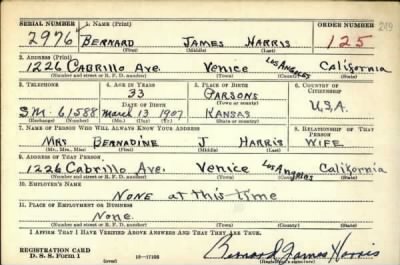 SERIAL NUMBER 1. NAME (Print) ORDER NUMBER 249
2976 BERNARD JAMES HARRIS 125
(First) (Middle) (Last)
2. ADDRESS (Print)
1226 CABRILLO AVE. VENICE LOS ANGELES CALIFORNIA
(Number and street or R. F. D. number) (Town) (County) (State)
3. TELEPHONE 4. AGE IN YEARS 5. PLACE OF BIRTH 6. COUNTRY OF CITIZENSHIP
33 PARSONS
DATE OF BIRTH (Town or county)
S.M. 61588 March 13 1907 KANSAS U.S.A.
(Exchange) (Number) (Mo.) (Day) (Yr.) (State or country)
7. NAME OF PERSON WHO WILL ALWAYS KNOW YOUR ADDRESS 8. RELATIONSHIP OF THAT PERSON
MRS BERNADINE J HARRIS WIFE
(Mr., Mrs., Miss) (First) (Middle) (Last)
9. ADDRESS OF THAT PERSON
1226 CABRILLO AVE. VENICE LOS ANGELES CALIFORNIA
(Number and street or R. F. D. number) (Town) (County) (State)
10. EMPLOYER'S NAME
NONE AT THIS TIME
11. PLACE OF EMPLOYMENT OR BUSINESS
NONE.
(Number and street or R. F. D. number) (Town) (County) (State)
I AFFIRM THAT I HAVE VERIFIED ABOVE ANSWERS AND THAT THEY ARE TRUE.
REGISTRATION CARD
D. S. S. Form 1 (over) Bernard James Harris